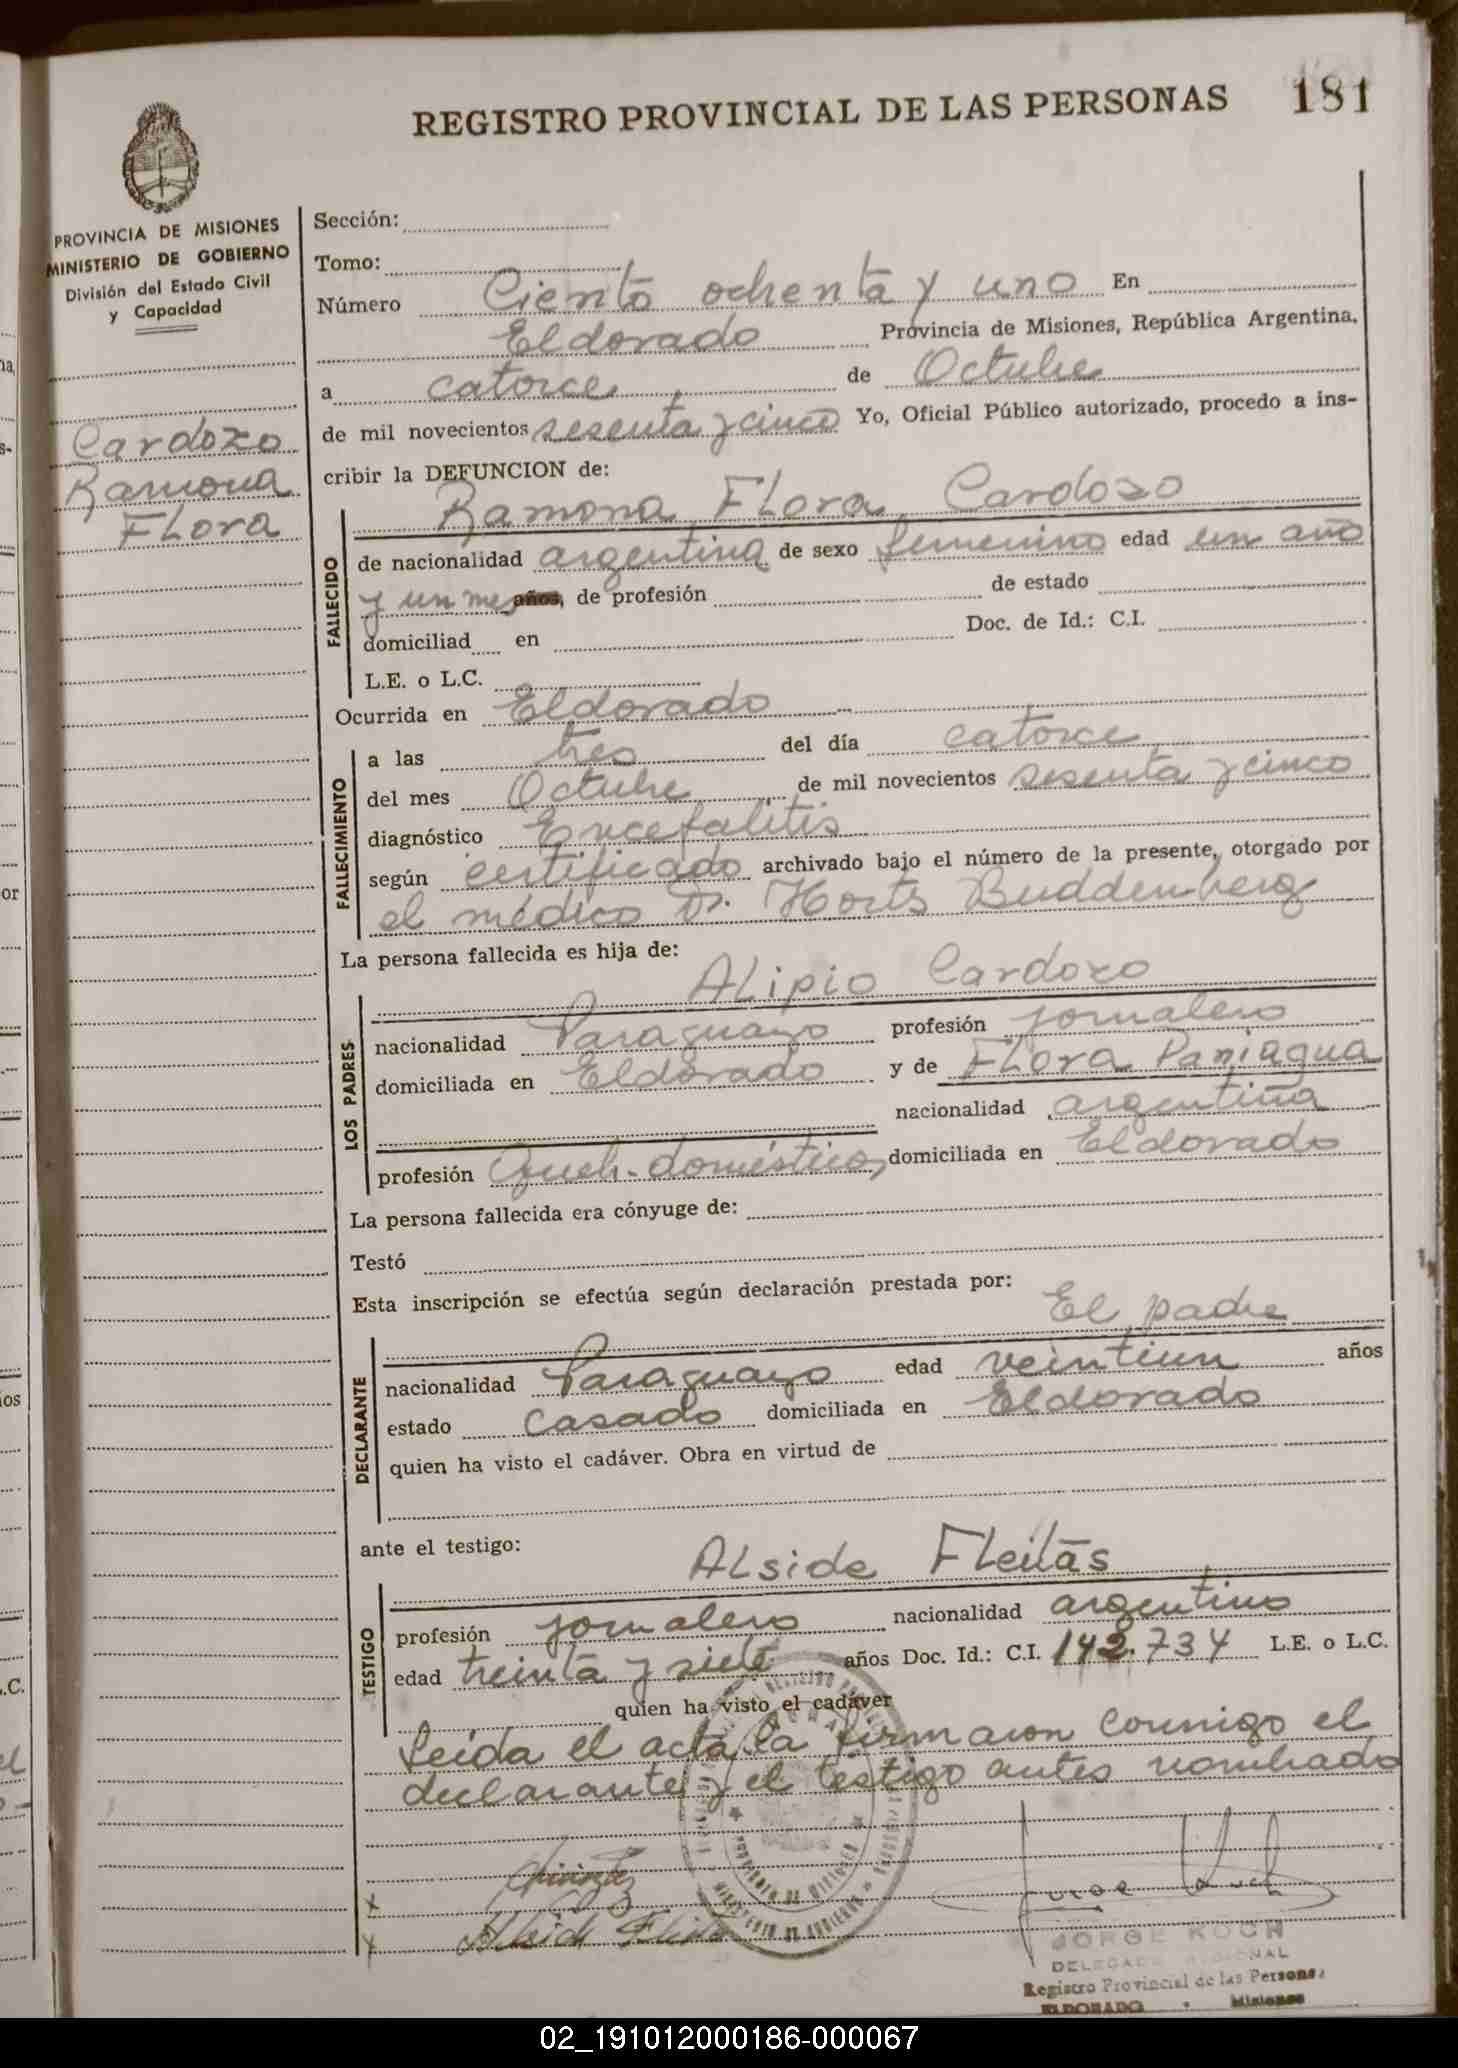 REGISTRO PROVINCIAL DE LAS PERSONAS 181
PROVINCIA DE MISIONES
MINISTERIO DE GOBIERNO
División del Estado Civil
y Capacidad
Cardozo
Ramona
Flora
Sección:
Tomo:
Número Ciento ochenta y uno En
Eldorado Provincia de Misiones, República Argentina,
a catorce de Octubre
de mil novecientos sesenta y cinco Yo, Oficial Público autorizado, procedo a ins-
cribir la DEFUNCION de:
Ramona Flora Cardozo
FALLECIDO
de nacionalidad argentina de sexo femenino edad un año
y un mes años, de profesión de estado
domiciliad en Doc. de Id.: C.I.
L.E. o L.C.
Ocurrida en Eldorado
FALLECIMIENTO
a las tres del día catorce
del mes Octubre de mil novecientos sesenta y cinco
diagnóstico Encefalitis
según certificado archivado bajo el número de la presente, otorgado por
el médico Dr. Horts Buddenberg
La persona fallecida es hija de:
Alipio Cardozo
LOS PADRES
nacionalidad Paraguayo profesión jornalero
domiciliada en Eldorado y de Flora Paniagua
nacionalidad argentina
profesión Queh. domésticos, domiciliada en Eldorado
La persona fallecida era cónyuge de:
Testó
Esta inscripción se efectúa según declaración prestada por:
El padre
DECLARANTE
nacionalidad Paraguayo edad veintiun años
estado Casado domiciliada en Eldorado
quien ha visto el cadáver. Obra en virtud de
ante el testigo:
Alside Fleitas
TESTIGO
profesión jornalero nacionalidad argentino
edad treinta y siete años Doc. Id.: C.I. 142.734 L.E. o L.C.
quien ha visto el cadáver
Leida el acta la firmaron conmigo el
declarante y el testigo antes nombrado
x
x Alside Fleitas
Jorge Koch
JORGE KOCH
DELEGADO REGIONAL
Registro Provincial de las Personas
ELDORADO - Misiones
02_191012000186-000067